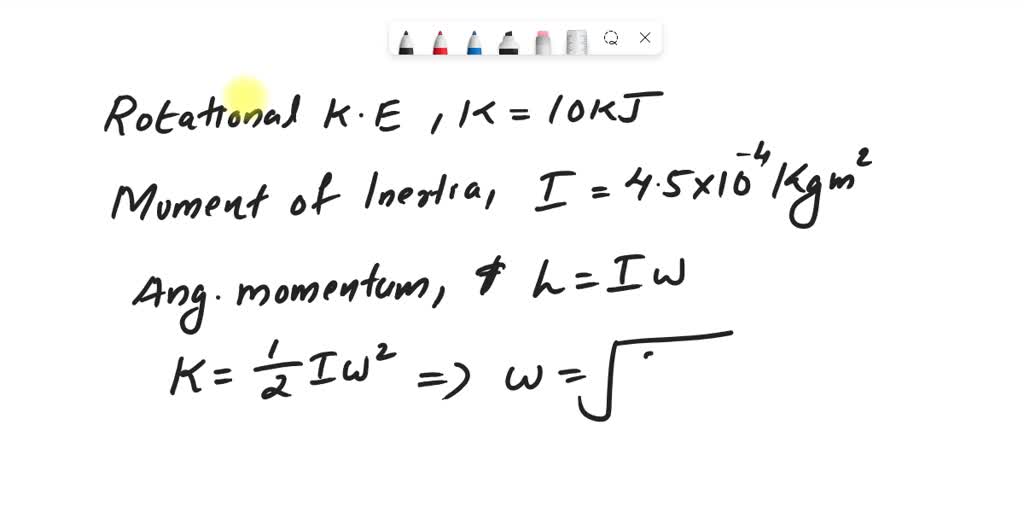 Rotational K.E, K = 10KJ
Moment of Inertia, I = 4.5×10⁻⁴ Kgm²
Ang. momentum, L = Iω
K = 1/2 Iω² => ω = √